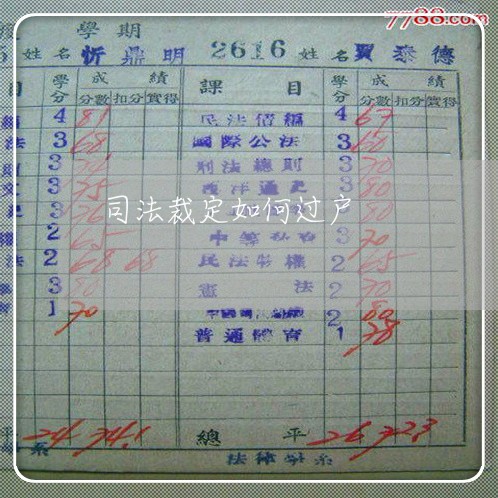 7788.com
學期
姓名 忻鼎明 2616 姓名 賈泰德
目 學分 成績 課目 學分 成績
分數 扣分 實得 分數 扣分 實得
4 81 民法債編 4 67
法 3 68 國際公法 3 60
3 刑法總則 3 70
3 75 西洋通史 3 80
3 3 80
司法裁定如何过户
2 65 3 70
法 2 68 68 民法物權 2 65
3 80 憲法 2 70
2 80
育 1 70 普通體育 1 78
平 24 74.1 總平 26 72.3
系 法律學系